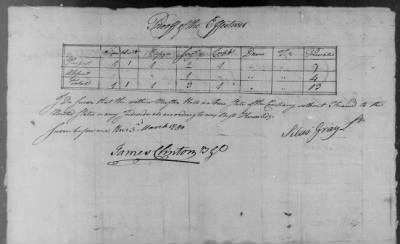 Proof of the Effectives
Capt Lieut Ensign Serjts Corpl Drum Fife Privates
Present 1 1 1 2 1 " " 9
Absent " " " 1 " " " 4
Total 1 1 1 3 1 " " 13
I Do swear that the within Muster Roll is a True State of the Company without Fraud to the
United States or any Individuals according to my Best Knowledge
Sworn before me this 3d March 1780
Silas Gray
James Clinton B Gl